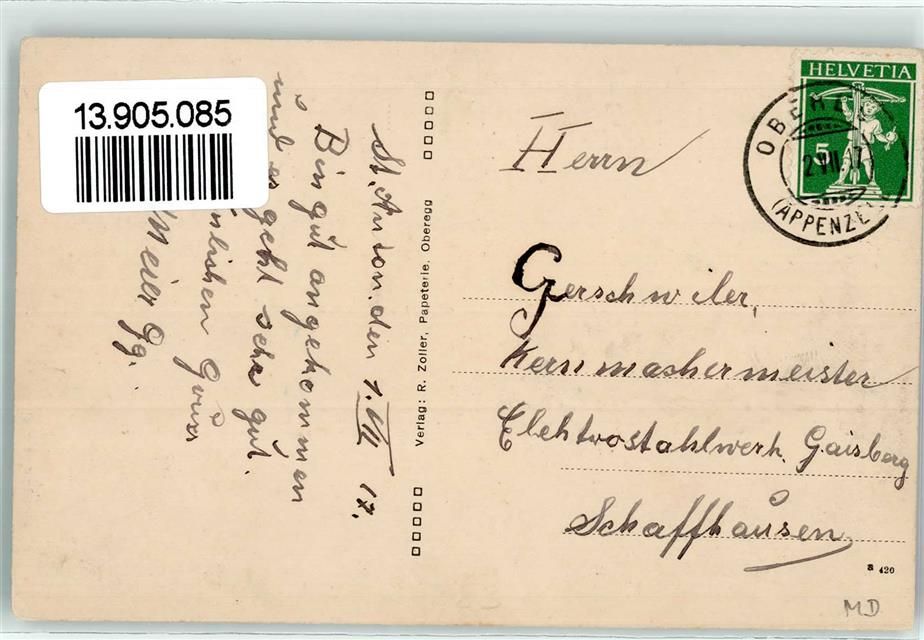 13.905.085
St. Anton. den 1.VII 17.
Bin gut angekommen
und es geht sehr gut.
Meier Gg.
Verlag: R. Zoller, Papeterie, Oberegg
HELVETIA
5
OBERE
2.VII.17
(APPENZE
Herrn
Gerschwiler,
Kernmachermeister
Elektrostahlwerk Gaisberg
Schaffhausen
a 420
MD